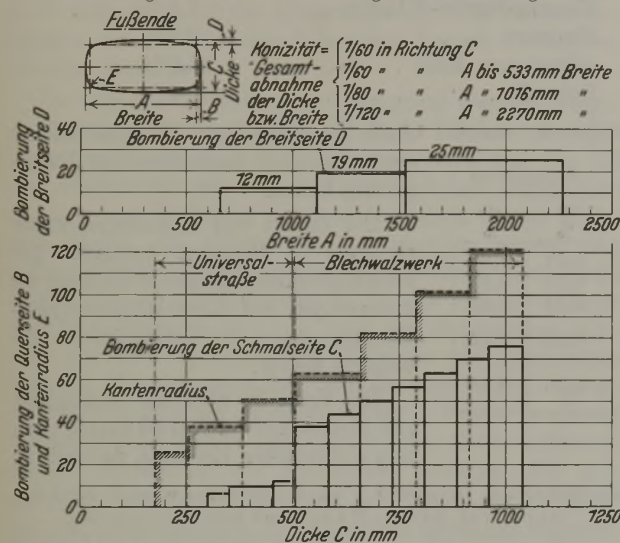 Fußende
D
C
Dicke
E
A
Breite
B
Konizität =
Gesamt-
abnahme
der Dicke
bzw. Breite
1/60 in Richtung C
1/60 " " A bis 533 mm Breite
1/80 " " A " 1016 mm "
1/120 " " A " 2270 mm "
Bombierung
der Breitseite D
40
20
0
Bombierung der Breitseite D
12 mm
19 mm
25 mm
0 500 1000 1500 2000 2500
Breite A in mm
Bombierung der Querseite B
und Kantenradius E
120
100
80
60
40
20
0
Universal-
straße
Blechwalzwerk
Bombierung der Schmalseite C
Kantenradius
0 250 500 750 1000 1250
Dicke C in mm